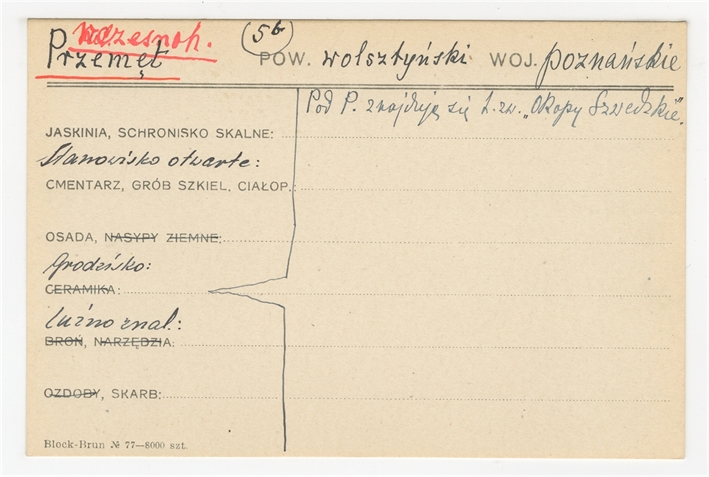 wczesnoh. (5b
Przemęt POW. wolsztyński WOJ. poznańskie
Pod P. znajdują się t. zw. „Okopy Szwedzkie".
JASKINIA, SCHRONISKO SKALNE:
Stanowisko otwarte:
CMENTARZ, GRÓB SZKIEL. CIAŁOP.:
OSADA, NASYPY ZIEMNE:
Grodzisko:
CERAMIKA:
Luźno znal.:
BROŃ, NARZĘDZIA:
OZDOBY, SKARB:
Block-Brun № 77—8000 szt.